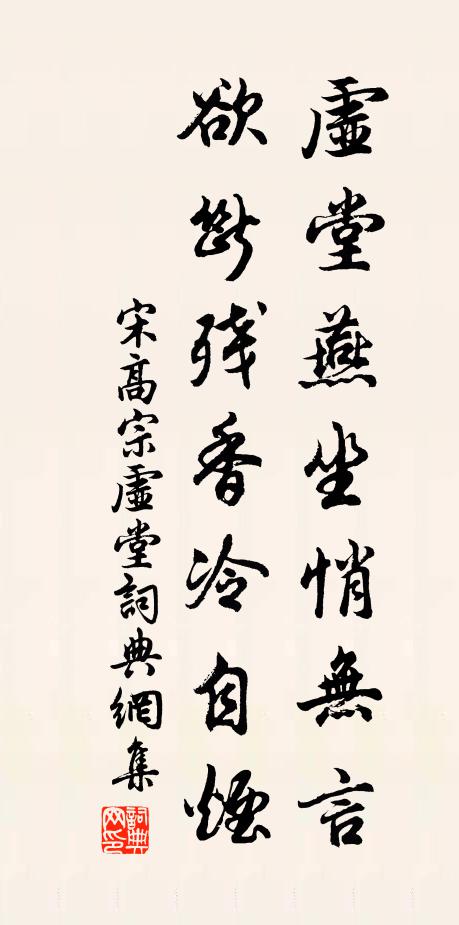 虛堂燕坐悄無言
欲斷残香冷自煙
宋高宗虛堂詞典網集
詞典網印